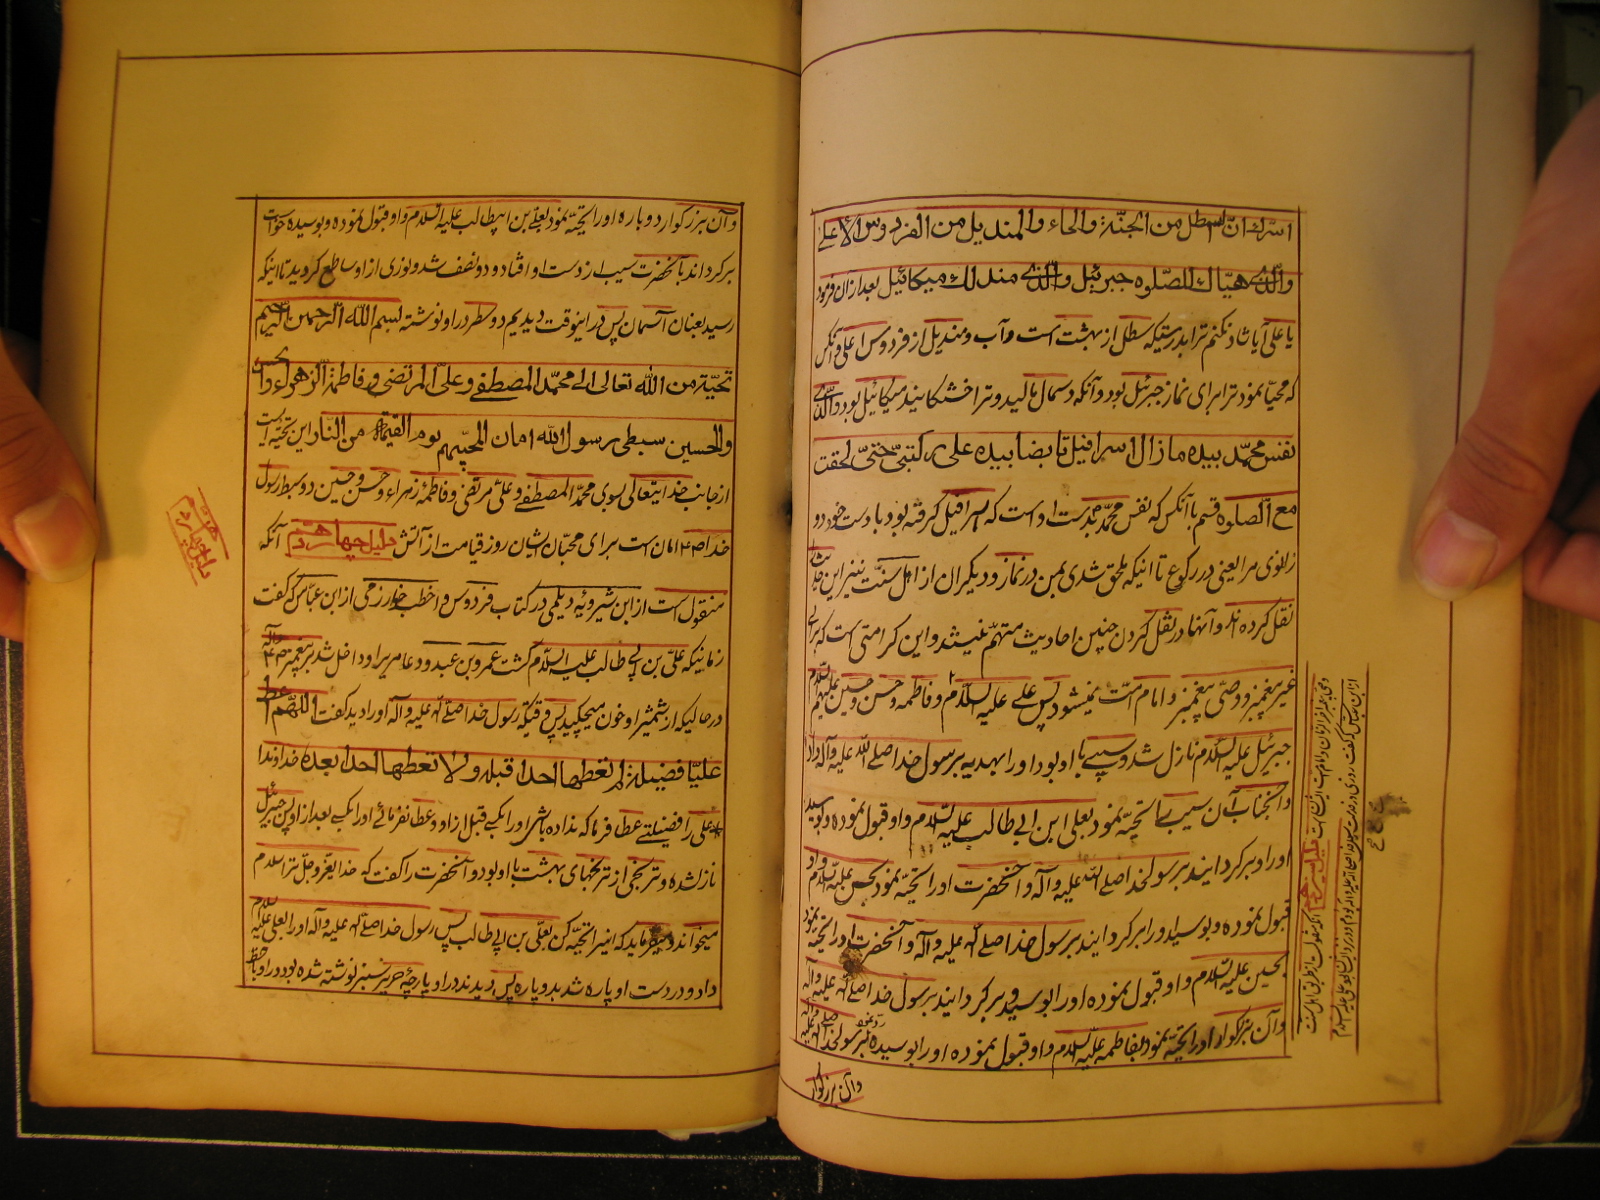 اسرّك انّ السطل من الجنّة والماء والمنديل من الفردوس الاعلى
والّذى هيّاك للصّلوة جبرئيل والّذى مندلك ميكائيل بعد از آن فرمود
يا على آيا شاد نكنم ترا بدرستيكه سطل از بهشت است وآب ومنديل از فردوس اعلى وآنكس
كه مهيّا نمود ترا براى نماز جبرئيل بود وآنكه دسمال ماليد وترا خشكانيد ميكائيل بود والّذى
نفس محمّد بيده ما زال اسرافيل قابضا بيده على ركبتى حتّى لحقت
مع الصلوة قسم باآنكس كه نفس محمّد بدست اوست كه اسرافيل گرفته بود با دست خود دو
زانوى مرا يعنى در ركوع تا اينكه ملحق شدى بمن در نماز وديگران از اهل سنّت نيز اين حديث را
نقل كرده اند وآنها در نقل كردن چنين احاديث متهمّ نيستند واين كرامتى است كه براى
غير پيغمبر ووصىّ پيغمبر وامام است نميشود پس على عليه السّلام وفاطمه وحسن وحسين عليهم السلام
جبرئيل عليه السّلام نازل شد وسيبى با او بود اورا بهديه برسول خدا صلى الله عليه وآله داد
وآنجناب آن سيب را تحيّه نمود بعلى ابن ابي طالب عليه السّلام واو قبول نموده وبوسيد
اورا وبرگردانيد برسولخدا صلى الله عليه وآله وآنحضرت اورا تحيّه نمود بحسن عليه السّلام واو
قبول نموده وبوسيد ورا برگردانيد برسول خدا صلى الله عليه وآله وآنحضرت اورا تحيّه نمود
بحسين عليه السّلام واو قبول نموده اورا بوسيد وبرگردانيد برسول خدا صلى الله عليه وآله
وآن بزرگوار اورا تحيّه نمود بفاطمه عليه السّلام واو قبول نموده اورا بوسيده برسولخدا صلى الله عليه وآله
رد نمود
وآن بزرگوار
دليل سيزدهم آنكه منقولست از طريق اهل سنت
از ابن عباس كه گفت روزى در خدمت رسول خدا صلى الله عليه وآله بودم
وآن بزرگوار دوباره اورا تحيّه نمود بعلى بن ابيطالب عليه السّلام واو قبول نموده وبوسيده خواست
برگرداند بآنحضرت سيب از دست او افتاد ودو نصف شد ونورى از او ساطع گرديد تا اينكه
رسيد بعنان آسمان پس در اينوقت ديديم دو سطر در او نوشته بسم الله الرّحمن الرّحيم
تحيّة من الله تعالى الى محمّد المصطفى وعلىّ المرتضى وفاطمة الزّهراء والحسن
والحسين سبطى رسول الله امان لمحبّيهم يوم القيمة من النّار اين تحيّه ايست
از جانب خدايتعالى بسوى محمّد المصطفى وعلىّ مرتضى وفاطمهٔ زهراء وحسن وحسين دو سبط رسول
خدا ص ۴ امان است براى محبّان ايشان روز قيامت از آتش دليل چهاردهم آنكه
منقول است از ابن شيرويه ديلمى در كتاب فردوس واخطب خوارزمى از ابن عبّاس كه گفت
زمانيكه علىّ بن ابي طالب عليه السّلام كشت عمرو بن عبدود عامرى را وداخل شد بر پيغمبر ص وآله
در حاليكه از شمشير او خون ميچكيد پس وقتيكه رسول خدا صلى الله عليه وآله اورا ديد گفت اللهمّ اعط
عليّا فضيلة لم تعطها احدا قبله ولا تعطها احدا بعده خداوندا
على را فضيلتى عطا فرما كه نداده باشى اورا بكسى قبل از او وعطا نفرمائى اورا بكسى بعد از او پس جبرئيل
نازل شده وترنجى از ترنجهاى بهشت با او بود وآنحضرت را گفت كه خدا العزّ وجلّ ترا سلام
ميخواند وميفرمايد كه اينرا تحيّه كن بعلىّ بن ابي طالب پس رسول خدا صلى الله عليه وآله اورا بعلى عليه السلام
داد ودر دست او پاره شد بدو پاره پس ديدند در او پارچهٔ حرير سبز نوشته شده بود در او با خط